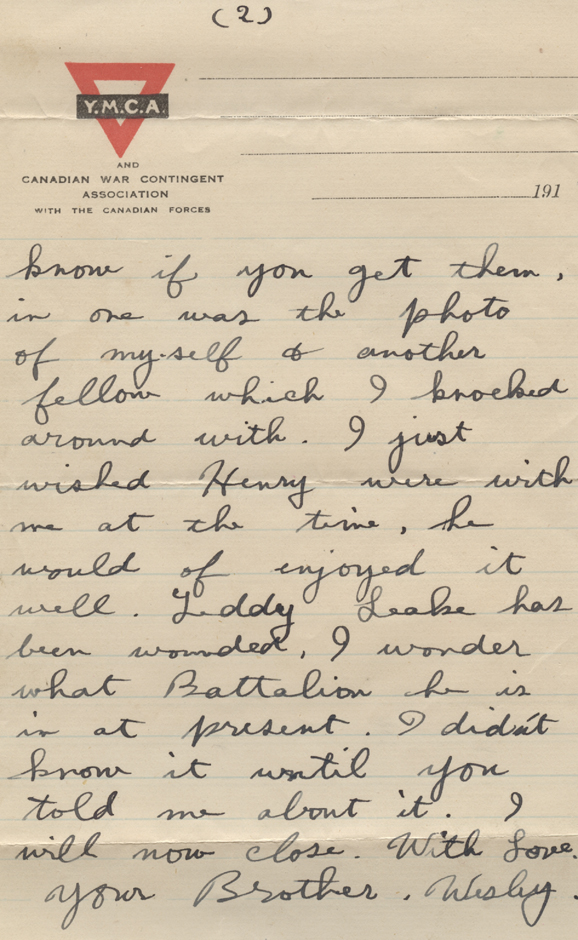 (2)
Y.M.C.A.
AND
CANADIAN WAR CONTINGENT
ASSOCIATION
WITH THE CANADIAN FORCES
191
know if you get them,
in one was the photo
of my-self & another
fellow which I knocked
around with. I just
wished Henry were with
me at the time, he
would of enjoyed it
well. Teddy Leake has
been wounded, I wonder
what Battalion he is
in at present. I didn't
know it until you
told me about it. I
will now close. With Love.
Your Brother. Wesley.